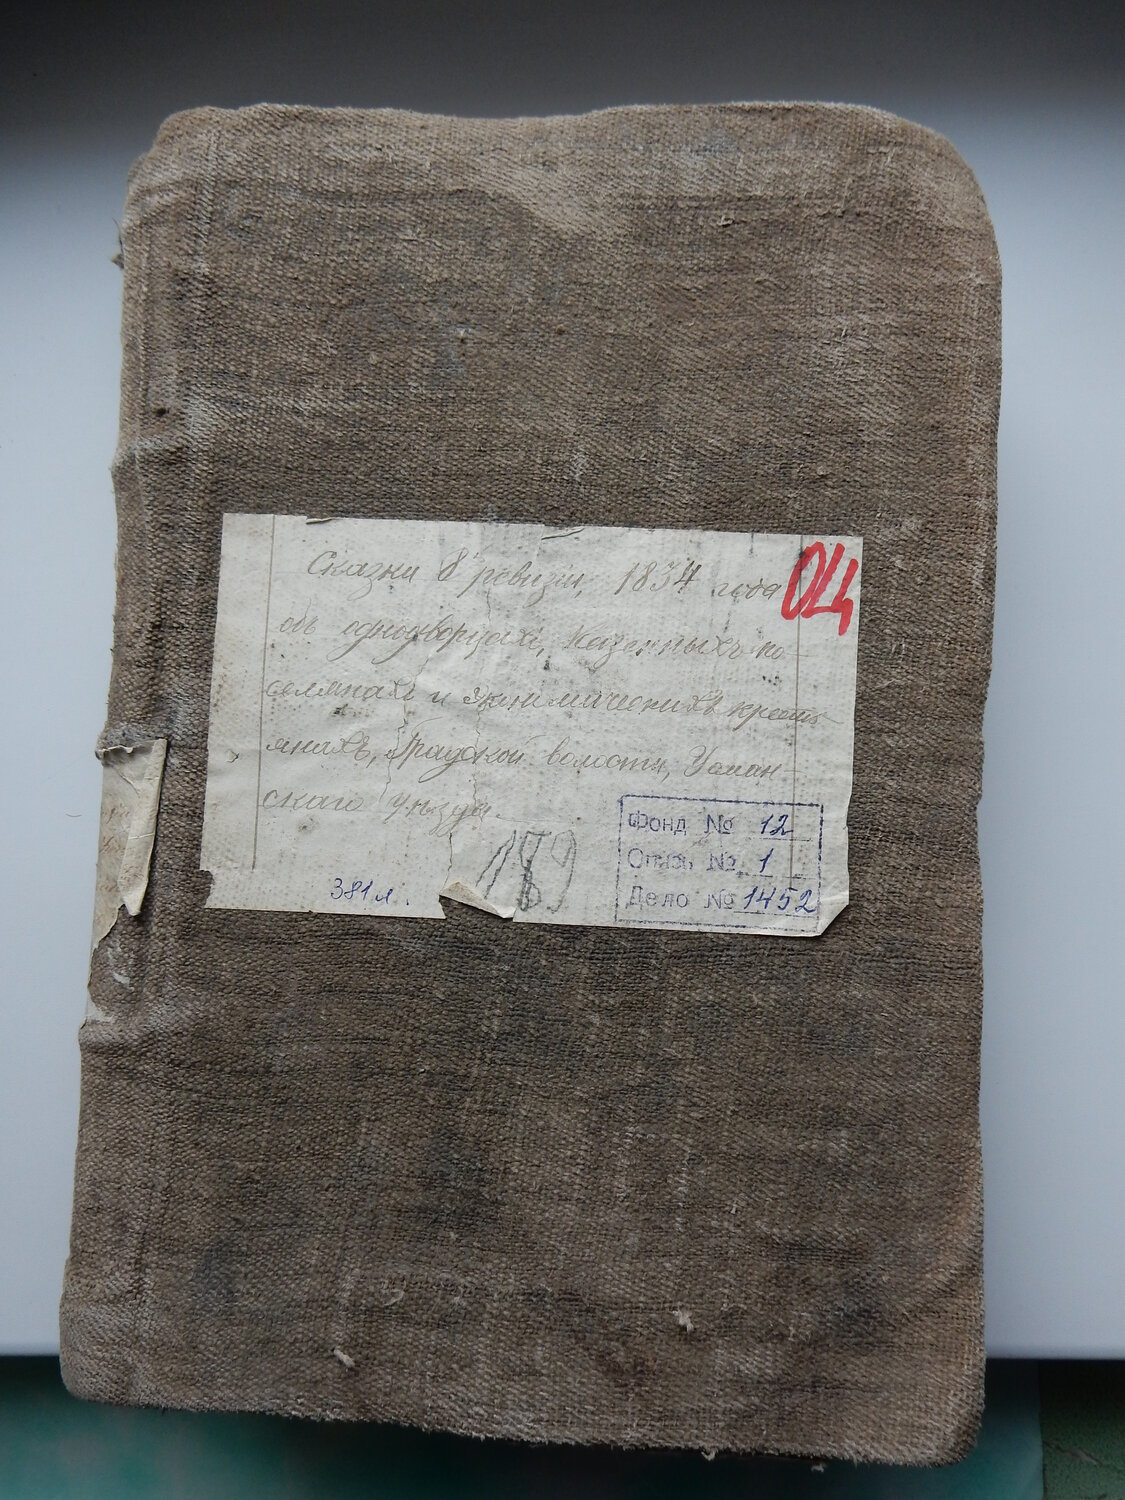 Сказки 8 ревизіи, 1834 года
ОЦ
объ однодворцахъ, казенныхъ по-
селянахъ и экономическихъ крест
янахъ, волости, Усман-
скаго уѣзда.
189
381 л.
Фонд № 12
Опись № 1
Дело № 1452